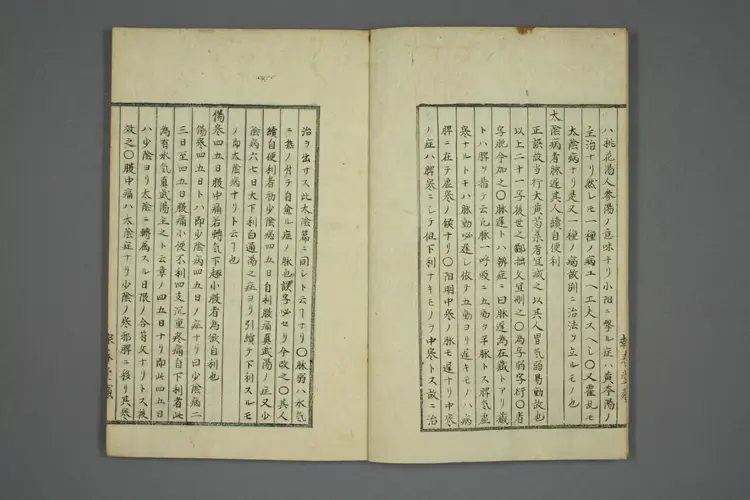 ハ桃花湯人参湯ノ意味ナリ小陽ニ撃ル症ハ黄芩湯ノ
主治ナリ然レモ一種ノ病ユヘ工夫スヘし〇又霍乱モ
太陰病ナリ是又一種ノ病故別ニ治法ヲ立ルモノ也
太陰病者脉遅其人續自便利
正誤故当行大黄芍薬者宜減之以其人胃氣弱易動故也
以上二十一字後世之鄙拙欠宜刪之〇為字弱字行〇者
字脱今加之〇脉遅トハ辨症ニ曰脉遅為在藏トアリ藏
トハ脾ヲ指テ云凡脉一呼吸ニ五動ヲ平脉トス脾氣虚
寒ナルトキハ脉動必遅し依テ五動ヨリ遅キモノハ病
脾ニ在テ虚寒ノ候ナリ〇陽明中寒ノ脉モ遅ナリ中寒
ノ症ハ脾寒ニシテ但下利ナキモノヲ中寒トス故ニ治
治ヲ出サス此太陰篇ニ同レト云フナリ〇脉弱ハ水氣
ニ拔ノ付テ自禽ル症ノ脉也誤字必セリ今改之〇其人
續自便利者初少陰病四五日自利腹痛真武湯ノ症又少
陰病六七日大下利白通湯之症ヨリ引續テ下利スルモ
ノ即太陰病ナリト云フ也
傷寒四五日腹中痛若轉氣下趣小腹者為欲自利也
傷寒四五日トハ即少陰病四五日ノ症ナリ曰少陰病二
三日至四五日腹痛小便不利四支沉重疼痛自下利者此
為有水氣真武湯主之ト云章ノ四五日ナリ即此四五日
ハ少陰ヨリ太陰ニ轉属スル日限ノ合符欠ナリトス後
效之〇腹中痛ハ太陰症ナリ少陰ノ寒邪脾ニ移リ其寒